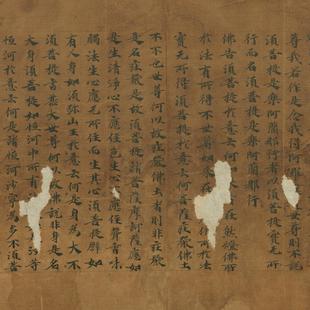 尊我若作是念我得阿羅世尊則不說
須菩提是樂阿蘭那行者以須菩提實無所
行而名須菩提是樂阿蘭那行
佛告須菩提於意云何如來在然燈佛所
於法有所得不世尊如來在佛所於法
實無所得須菩提於意云何菩薩莊嚴佛土
不不也世尊何以故莊嚴佛土者則非莊嚴
是名莊嚴是故須菩提諸菩薩摩訶薩應如
是生清淨心不應住色生心不應住聲香味
觸法生心應無所住而生其心須菩提譬如
有人身如須彌山王於意云何是身為大不
須菩提言甚大世尊何以故佛說非身是名
大身須菩提如恒河中所有沙等
恒河於意云何是諸恒河沙寧為多不須菩